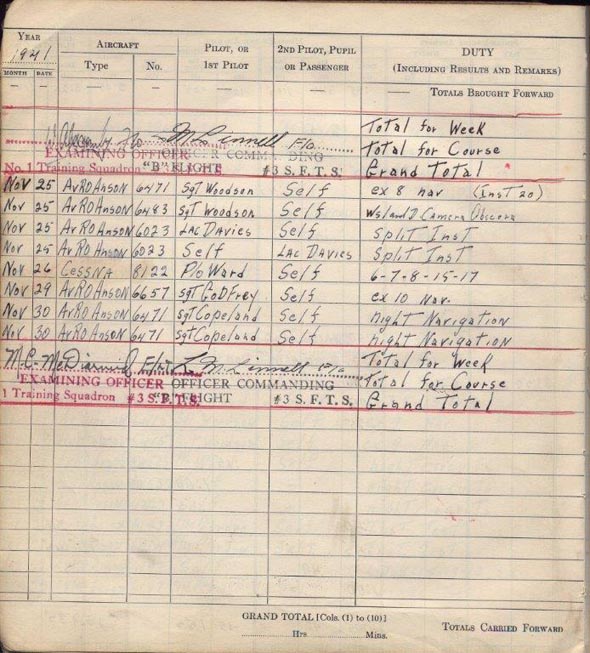 YEAR AIRCRAFT PILOT, OR 2ND PILOT, PUPIL DUTY
1941 1ST PILOT OR PASSENGER (INCLUDING RESULTS AND REMARKS)
MONTH DATE Type No.
— — — — — — —— TOTALS BROUGHT FORWARD
F/o Total for Week
EXAMINING OFFICER Total for Course
No. 1 Training Squadron "B" FLIGHT #3 S.F.T.S. Grand Total
Nov 25 AvRO Anson 6471 Sgt Woodson Self ex 8 nav (Inst 20)
Nov 25 AvRO Anson 6483 Sgt Woodson Self Camera Obscera
Nov 25 AvRO Anson 6023 LAC Davies Self Split Inst
Nov 25 AvRO Anson 6023 Self LAC Davies Split Inst
Nov 26 CESSNA 8122 P/o Ward Self 6-7-8-15-17
Nov 29 AvRO Anson 6657 sgt GoDFrey Self ex 10 Nav.
Nov 30 AvRO Anson 6471 sgt Copeland Self night Navigation
Nov 30 AvRO Anson 6471 sgt Copeland Self night Navigation
Total for Week
EXAMINING OFFICER OFFICER COMMANDING Total for Course
1 Training Squadron #3 S.F.T.S. FLIGHT #3 S.F.T.S. Grand Total
GRAND TOTAL [Cols. (1) to (10)] TOTALS CARRIED FORWARD
Hrs Mins.